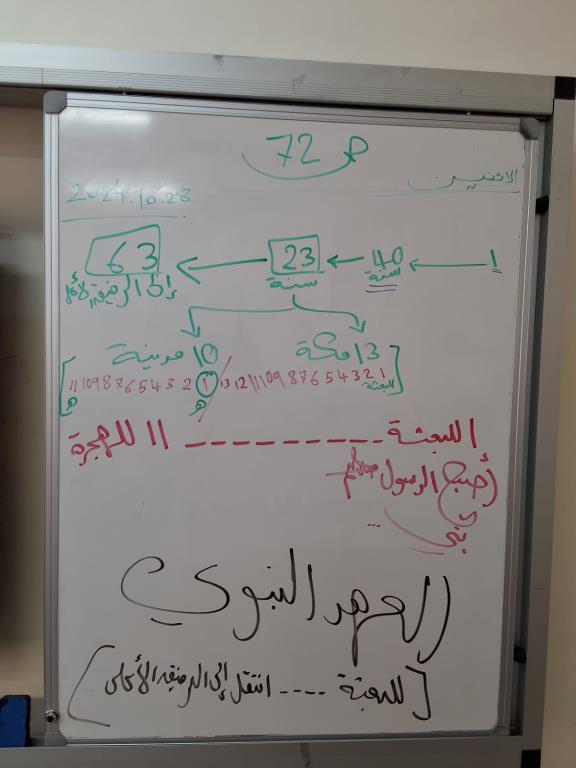 ص 72
الاثنين
2024.10.28
1 ← 40 سنة ← 23 سنة ← 63
إلى الرفيق الأعلى
13 مكة 10 مدينة
[1 2 3 4 5 6 7 8 9 10 11 12 13 / 1 2 3 4 5 6 7 8 9 10 11]
البعثة هـ هـ
البعثة --------- 11 للهجرة
(أصبح الرسول صلى الله عليه وسلم
نبي ...
العهد النبوي
[البعثة ---- انتقل إلى الرفيق الأعلى]